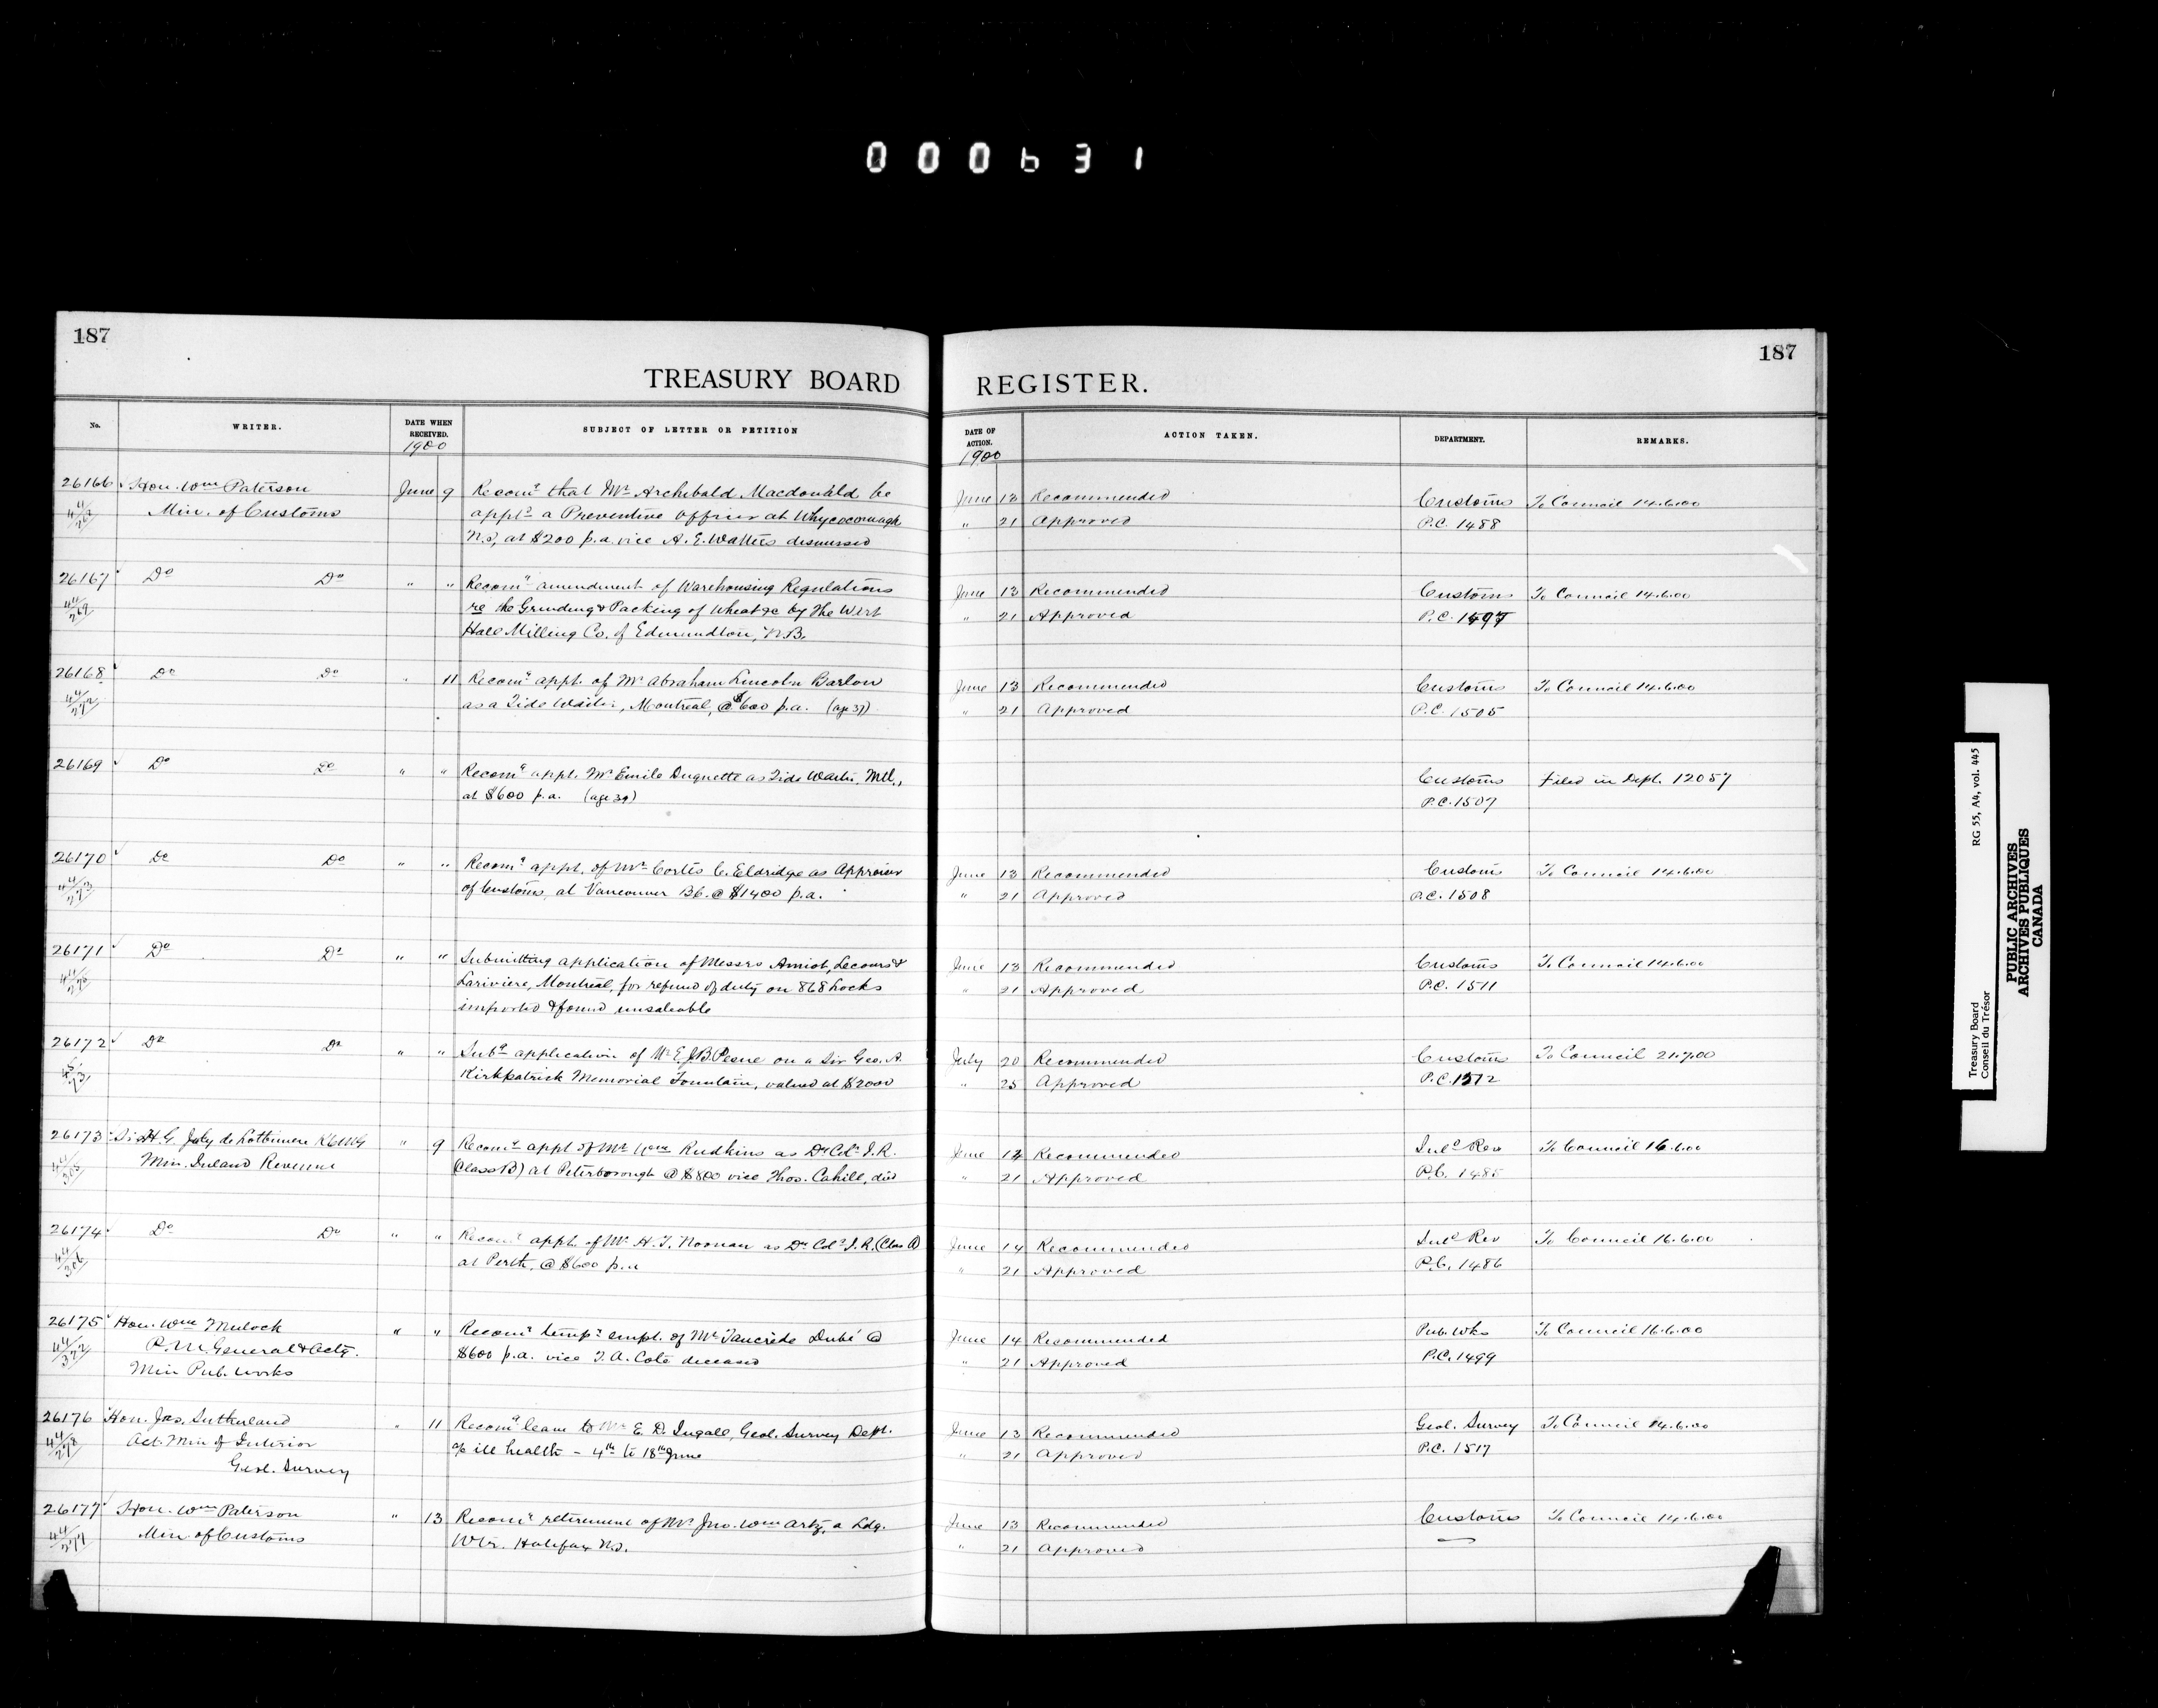 000631
187
187
TREASURY BOARD REGISTER.
No. WRITER. DATE WHEN RECEIVED. SUBJECT OF LETTER OR PETITION DATE OF ACTION. ACTION TAKEN. DEPARTMENT. REMARKS.
1900 1900
26166 Hon. Wm Paterson June 9 Recomg that Mr Archibald Macdonald be June 13 Recommended Customs To Council 14.6.00
Min. of Customs apptd a Preventive Officer at Whycocomagh " 21 Approved P.C. 1488
N.S., at $200 p.a. vice A. E. Watters dismissed
26167 Do Do " " Recomg amendment of Warehousing Regulations June 13 Recommended Customs To Council 14.6.00
re the Grinding & Packing of Wheat &c by the West " 21 Approved P.C. 1497
Hall Milling Co. of Edmundton, N.B.
26168 Do Do " 11 Recomg appt. of Mr Abraham Lincoln Barlow June 13 Recommended Customs To Council 14.6.00
as a Tide Waiter, Montreal, @ $600 p.a. (age 37) " 21 Approved P.C. 1505
26169 Do Do " " Recomg appt. Mr Emile Duquette as Tide Waiter, Mtl., Customs Filed in Dept. 12057
at $600 p.a. (age 39) P.C. 1507
26170 Do Do " " Recomg appt. of Mr Cortes C. Eldridge as Appraiser June 13 Recommended Customs To Council 14.6.00
of Customs, at Vancouver B.C. @ $1400 p.a. " 21 Approved P.C. 1508
26171 Do Do " " Submitting application of Messrs Amiot, Lecours & June 13 Recommended Customs To Council 14.6.00
Lariviere, Montreal, for refund of duty on 868 Locks " 21 Approved P.C. 1511
imported & found unsaleable
26172 Do Do " " Subg application of Mr E. J. B. Pense on a Sir Geo. A. July 20 Recommended Customs To Council 21.7.00
Kirkpatrick Memorial Fountain, valued at $2000 " 25 Approved P.C. 1512
26173 Sir H. G. Joly de Lotbiniere KCMG " 9 Recomg appt of Mr Wm Rudkins as Dy Colr I.R. June 14 Recommended Inld Rev To Council 16.6.00
Min. Inland Revenue (Class B) at Peterborough @ $800 vice Thos. Cahill, died " 21 Approved P.C. 1485
26174 Do Do " " Recomg appt. of Mr H. T. Noonan as Dy Colr I.R. (Class A) June 14 Recommended Inld Rev To Council 16.6.00
at Perth, @ $600 p.a. " 21 Approved P.C. 1486
26175 Hon. Wm Mulock " " Recomg tempy empt. of Mr Tancrède Dubé @ June 14 Recommended Pub. Wks To Council 16.6.00
P. M. General & Actg. $600 p.a. vice T. A. Coté deceased " 21 Approved P.C. 1499
Min Pub. Works
26176 Hon. Jas. Sutherland " 11 Recomg leave to Mr E. D. Ingall, Geol. Survey Dept. June 13 Recommended Geol. Survey To Council 14.6.00
Act. Min of Interior % ill health - 4th to 18th June " 21 Approved P.C. 1517
Geol. Survey
26177 Hon. Wm Paterson " 13 Recomg retirement of Mr Jno. Wm Artz, a Ldg. June 13 Recommended Customs To Council 14.6.00
Min. of Customs Wtr. Halifax N.S. " 21 Approved
Treasury Board RG 55, A4, vol. 445
Conseil du Trésor
PUBLIC ARCHIVES
ARCHIVES PUBLIQUES
CANADA